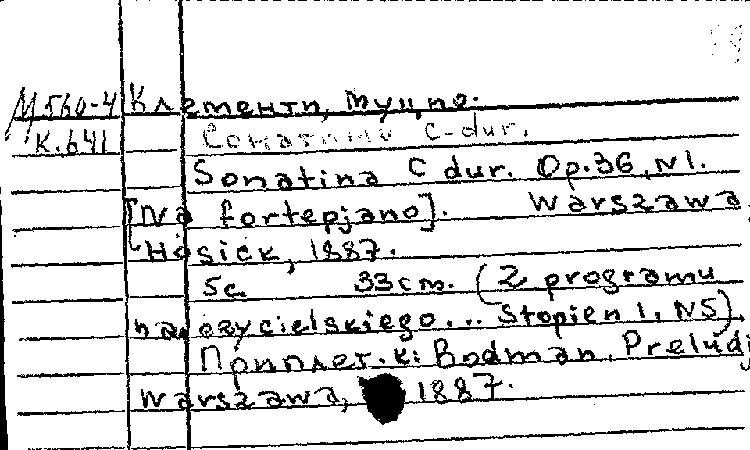 М560-4 Клементи, Муцио.
К.641 Сонатини C-dur.
Sonatina C dur. Op.36, N1.
[Na fortepjano]. Warszawa,
Hösick, 1887.
5с. 33см. (Z programu
nauczycielskiego... Stopien 1, N5).
Приплет. к: Bodman. Preludj
Warszawa, 1887.